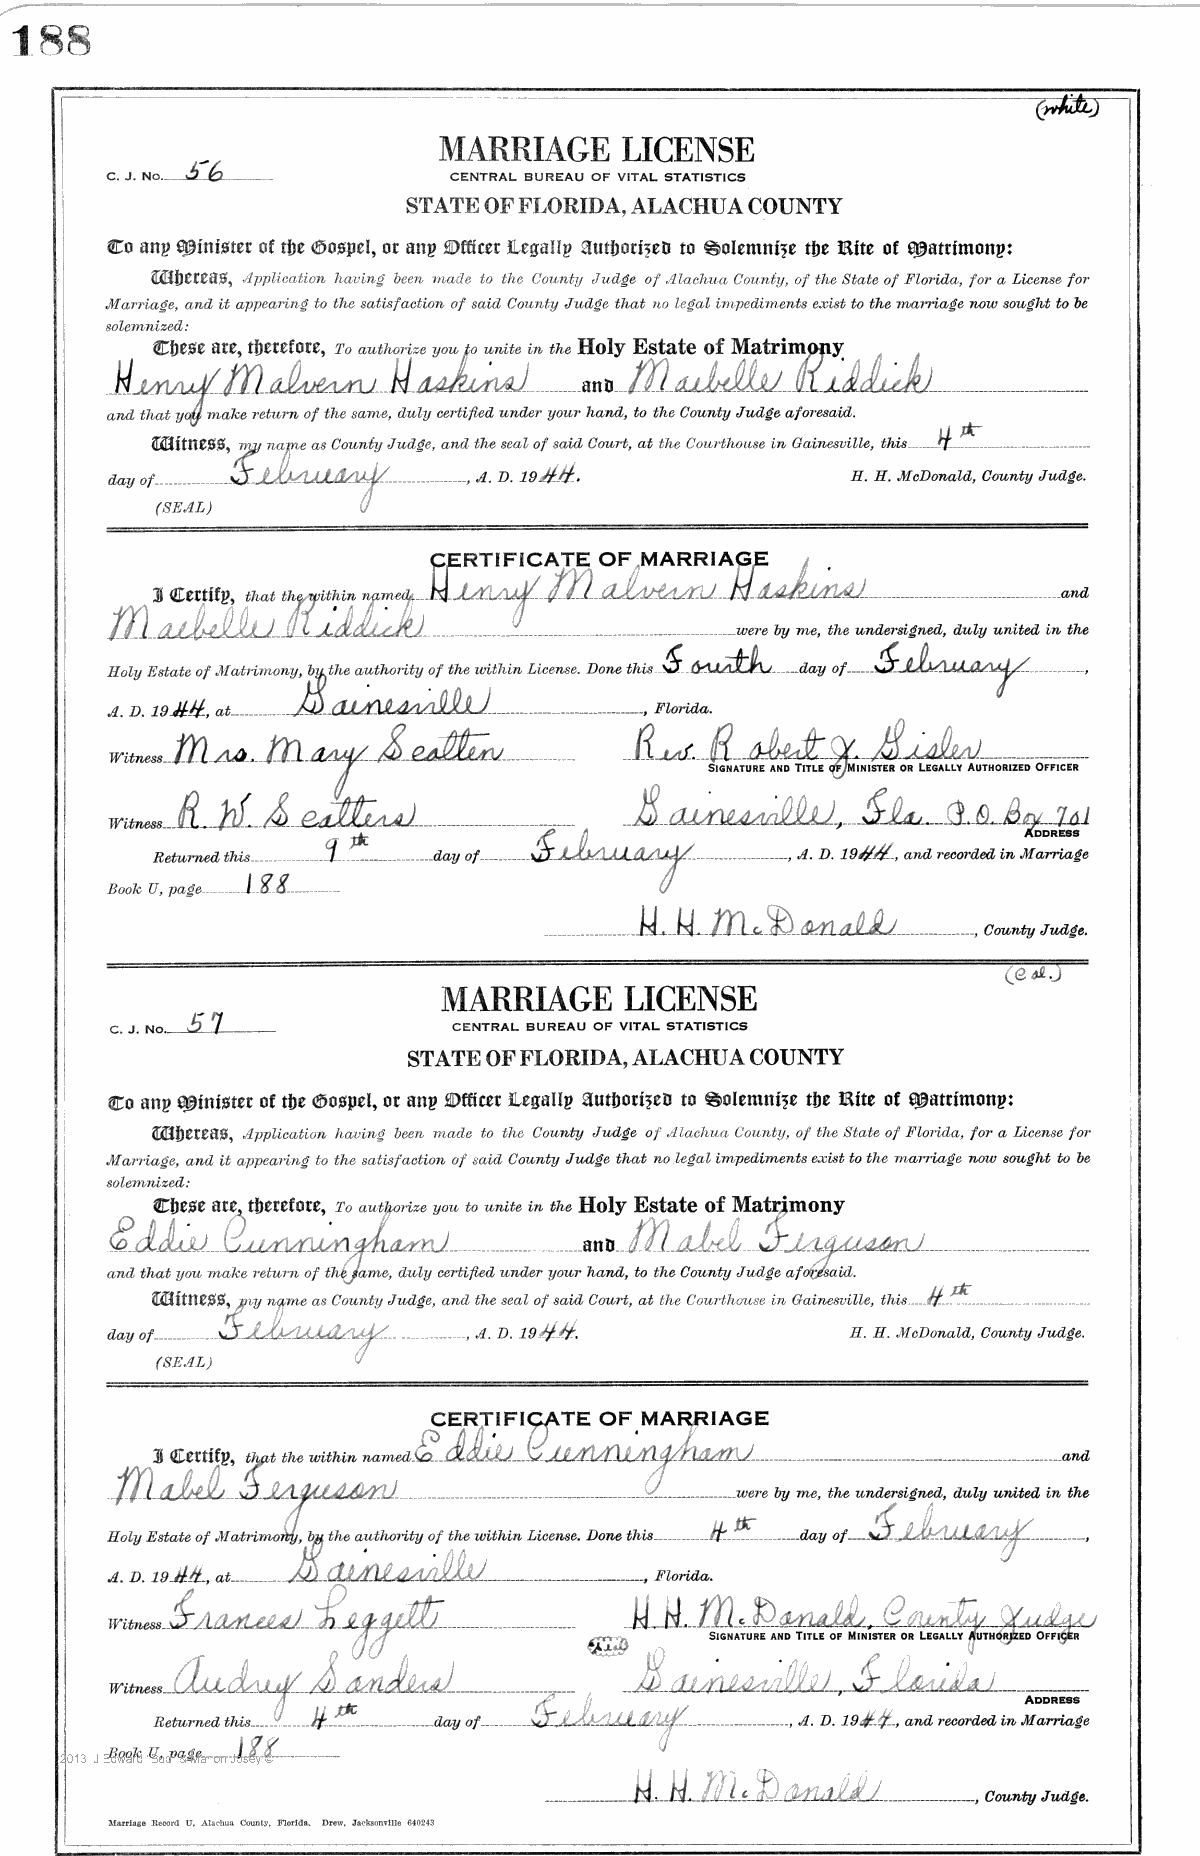 188
(white)
MARRIAGE LICENSE
C. J. No. 56
CENTRAL BUREAU OF VITAL STATISTICS
STATE OF FLORIDA, ALACHUA COUNTY
To any Minister of the Gospel, or any Officer Legally Authorized to Solemnize the Rite of Matrimony:
Whereas, Application having been made to the County Judge of Alachua County, of the State of Florida, for a License for
Marriage, and it appearing to the satisfaction of said County Judge that no legal impediments exist to the marriage now sought to be
solemnized:
These are, therefore, To authorize you to unite in the Holy Estate of Matrimony
Henry Malvern Haskins and Maebelle Riddick
and that you make return of the same, duly certified under your hand, to the County Judge aforesaid.
Witness, my name as County Judge, and the seal of said Court, at the Courthouse in Gainesville, this 4th
day of February, A. D. 1944. H. H. McDonald, County Judge.
(SEAL)
CERTIFICATE OF MARRIAGE
I Certify, that the within named Henry Malvern Haskins and
Maebelle Riddick were by me, the undersigned, duly united in the
Holy Estate of Matrimony, by the authority of the within License. Done this Fourth day of February,
A. D. 1944, at Gainesville, Florida.
Witness Mrs. Mary Rev. Robert J. Gisler
SIGNATURE AND TITLE OF MINISTER OR LEGALLY AUTHORIZED OFFICER
Witness R. W. Gainesville, Fla. P.O. Box 701
ADDRESS
Returned this 9th day of February, A. D. 1944, and recorded in Marriage
Book U, page 188
H. H. McDonald, County Judge.
(Col.)
MARRIAGE LICENSE
C. J. No. 57
CENTRAL BUREAU OF VITAL STATISTICS
STATE OF FLORIDA, ALACHUA COUNTY
To any Minister of the Gospel, or any Officer Legally Authorized to Solemnize the Rite of Matrimony:
Whereas, Application having been made to the County Judge of Alachua County, of the State of Florida, for a License for
Marriage, and it appearing to the satisfaction of said County Judge that no legal impediments exist to the marriage now sought to be
solemnized:
These are, therefore, To authorize you to unite in the Holy Estate of Matrimony
Eddie Cunningham and Mabel Ferguson
and that you make return of the same, duly certified under your hand, to the County Judge aforesaid.
Witness, my name as County Judge, and the seal of said Court, at the Courthouse in Gainesville, this 4th
day of February, A. D. 1944. H. H. McDonald, County Judge.
(SEAL)
CERTIFICATE OF MARRIAGE
I Certify, that the within named Eddie Cunningham and
Mabel Ferguson were by me, the undersigned, duly united in the
Holy Estate of Matrimony, by the authority of the within License. Done this 4th day of February,
A. D. 1944, at Gainesville, Florida.
Witness Frances Leggett H. H. McDonald, County Judge
SIGNATURE AND TITLE OF MINISTER OR LEGALLY AUTHORIZED OFFICER
Witness Audrey Sanders Gainesville, Florida
ADDRESS
Returned this 4th day of February, A. D. 1944, and recorded in Marriage
Book U, page 188
H. H. McDonald, County Judge.
Marriage Record U, Alachua County, Florida. Drew, Jacksonville 640243